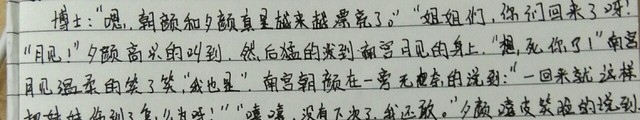 博士:“嗯,朝颜和夕颜真是越来越漂亮了。”“姐姐们,你们回来了呀!
“月见!”夕颜高兴的叫到,然后猛的扑到南宫月见的身上,“想死你了!”南宫
月见温柔的笑了笑,“我也是”。南宫朝颜在一旁无奈的说到:“一回来就这样
把妹妹伤到了怎么办呀!”“嘻嘻,没有下次了,我还敢。”夕颜嘻皮笑脸的说到